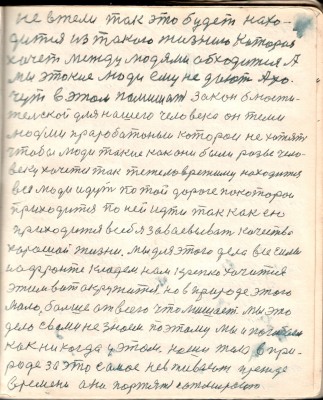 не в тели так это будет нахо-
дится из такого жизнию которая
хочет между людями обходится А
мы этокие люди ему не дают Ахо-
чут в этом помишат закон блюсти-
тельской для нашего человека он теми
людми праработоныи которои не хотят
чтобы люди такие как они были разве чело-
веку хочется так тежело времину находитц
все люди идут по той дороге по которои
приходится по ней идти так как ею
приходится всебя завоевыват качество
хорошай жизни. мы для этого дела все силы
на фронте кладем нам крепко хочится
этим вит окружится но в природе этого
мало, болше от всего что мишает. мы это
дело сами не знаем поэтому мы и погибаем
как никогда у этом. наши тело в при-
роде за это самое не в тивают прежде
времень они портят